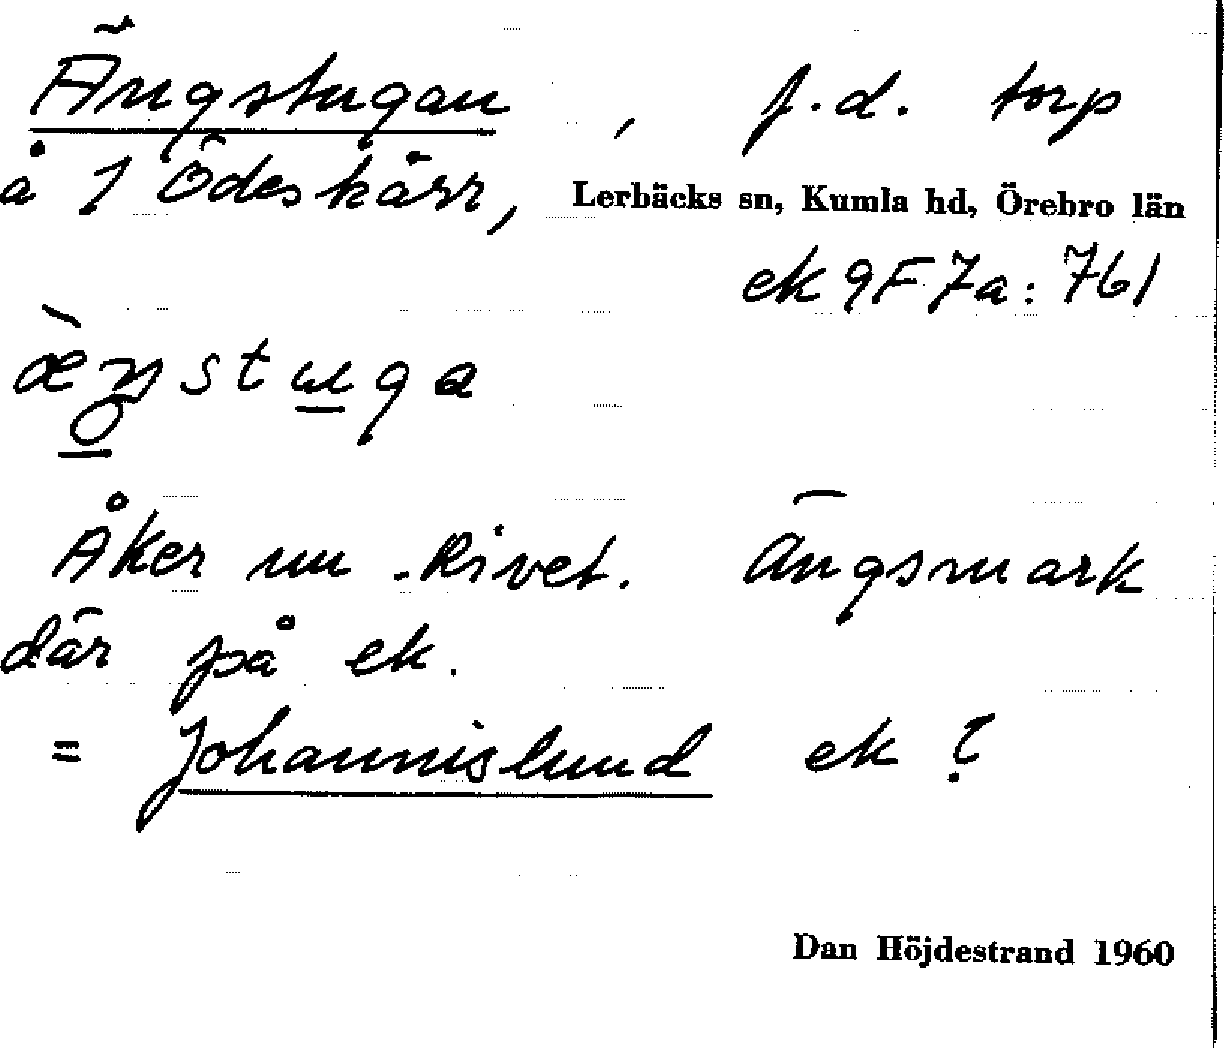 Ängstugan, f.d. torp
å 1 Ödeskärr, Lerbäcks sn, Kumla hd, Örebro län
ek 9F7a:761
æ̀ŋstuga
Åker nu. Rivet. Ängsmark
där på ek.
= Johannislund ek?
Dan Höjdestrand 1960